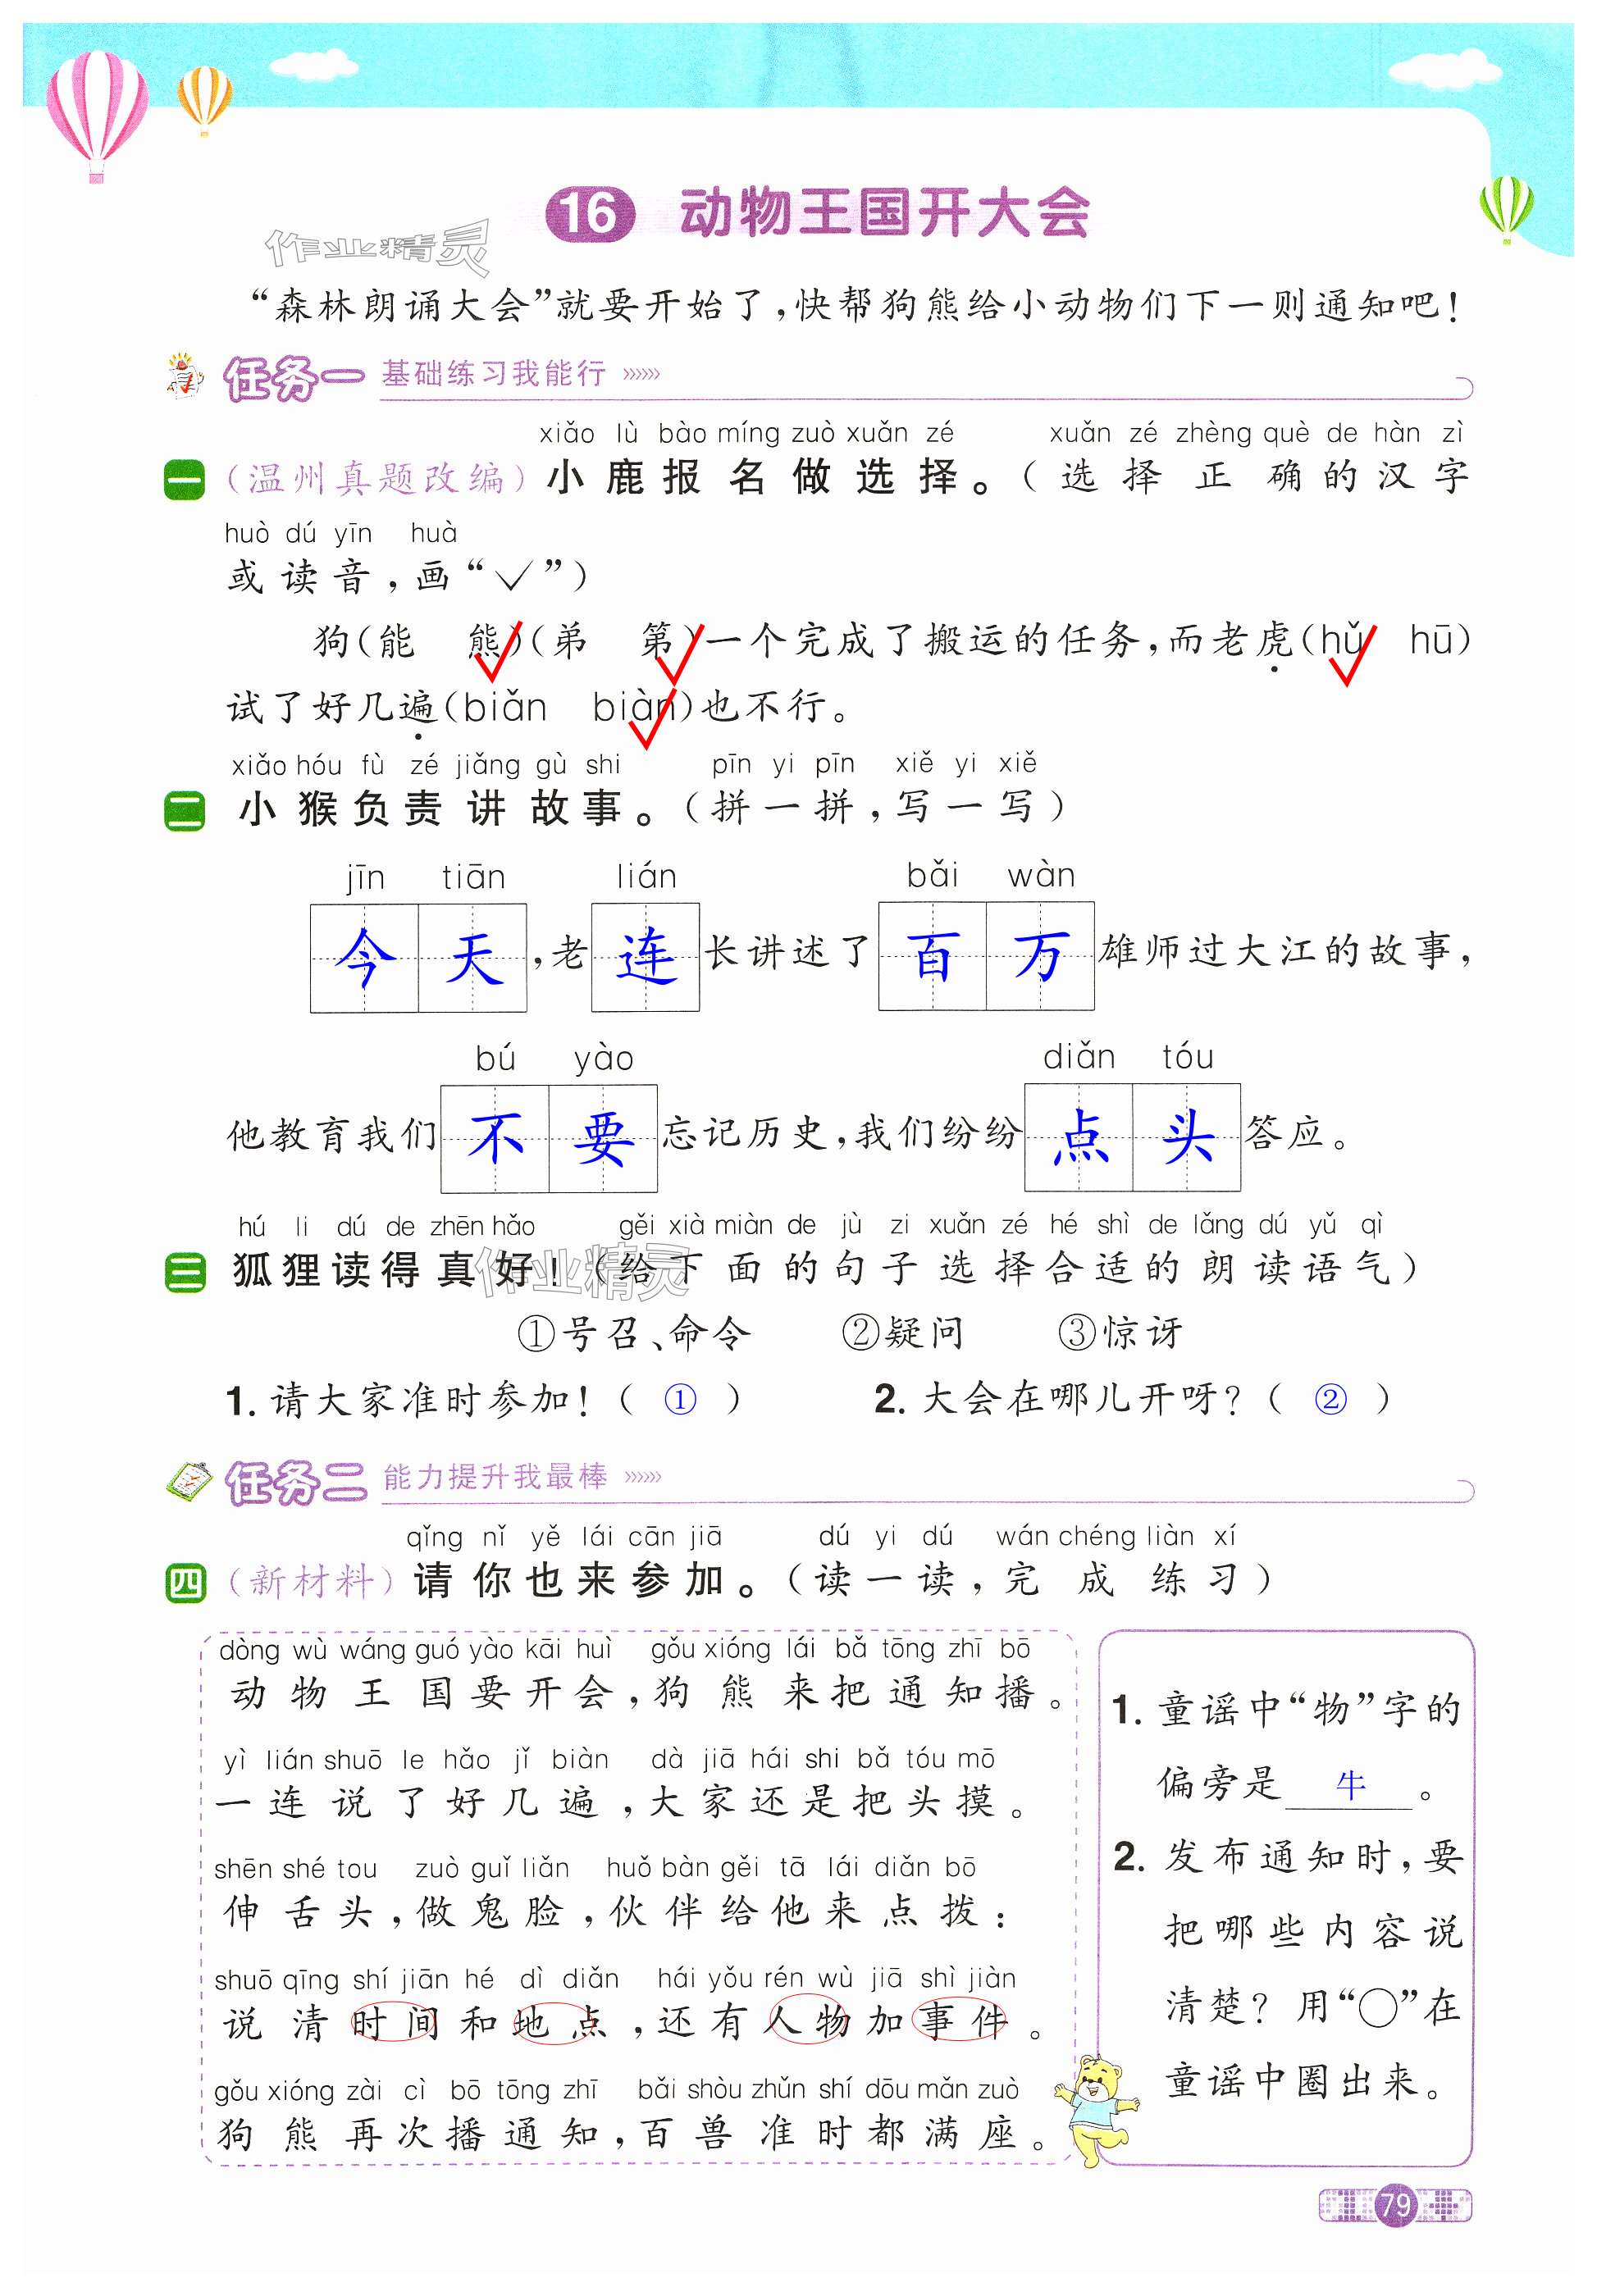 16 动物王国开大会
作业精灵
“森林朗诵大会”就要开始了，快帮狗熊给小动物们下一则通知吧！
任务一 基础练习我能行 »»»
xiǎo lù bào míng zuò xuǎn zé xuǎn zé zhèng què de hàn zì
一 （温州真题改编）小鹿报名做选择。（选择正确的汉字
huò dú yīn huà
或读音，画“✓”）
狗（能 熊✓）（弟 第✓）一个完成了搬运的任务，而老虎（hǔ✓ hū）
试了好几遍（biǎn biàn✓）也不行。
xiǎo hóu fù zé jiǎng gù shi pīn yi pīn xiě yi xiě
二 小猴负责讲故事。（拼一拼，写一写）
jīn tiān lián bǎi wàn
今天，老连长讲述了百万雄师过大江的故事，
bú yào diǎn tóu
他教育我们不要忘记历史，我们纷纷点头答应。
hú li dú de zhēn hǎo gěi xià miàn de jù zi xuǎn zé hé shì de lǎng dú yǔ qì
三 狐狸读得真好！（给下面的句子选择合适的朗读语气）
作业精灵
①号召、命令 ②疑问 ③惊讶
1. 请大家准时参加！（ ① ） 2. 大会在哪儿开呀？（ ② ）
任务二 能力提升我最棒 »»»
qǐng nǐ yě lái cān jiā dú yi dú wán chéng liàn xí
四 （新材料）请你也来参加。（读一读，完成练习）
dòng wù wáng guó yào kāi huì gǒu xióng lái bǎ tōng zhī bō
动物王国要开会，狗熊来把通知播。
yì lián shuō le hǎo jǐ biàn dà jiā hái shi bǎ tóu mō
一连说了好几遍，大家还是把头摸。
shēn shé tou zuò guǐ liǎn huǒ bàn gěi tā lái diǎn bō
伸舌头，做鬼脸，伙伴给他来点拨：
shuō qīng shí jiān hé dì diǎn hái yǒu rén wù jiā shì jiàn
说清时间和地点，还有人物加事件。
gǒu xióng zài cì bō tōng zhī bǎi shòu zhǔn shí dōu mǎn zuò
狗熊再次播通知，百兽准时都满座。
1. 童谣中“物”字的
偏旁是 牛 。
2. 发布通知时，要
把哪些内容说
清楚？用“○”在
童谣中圈出来。
79